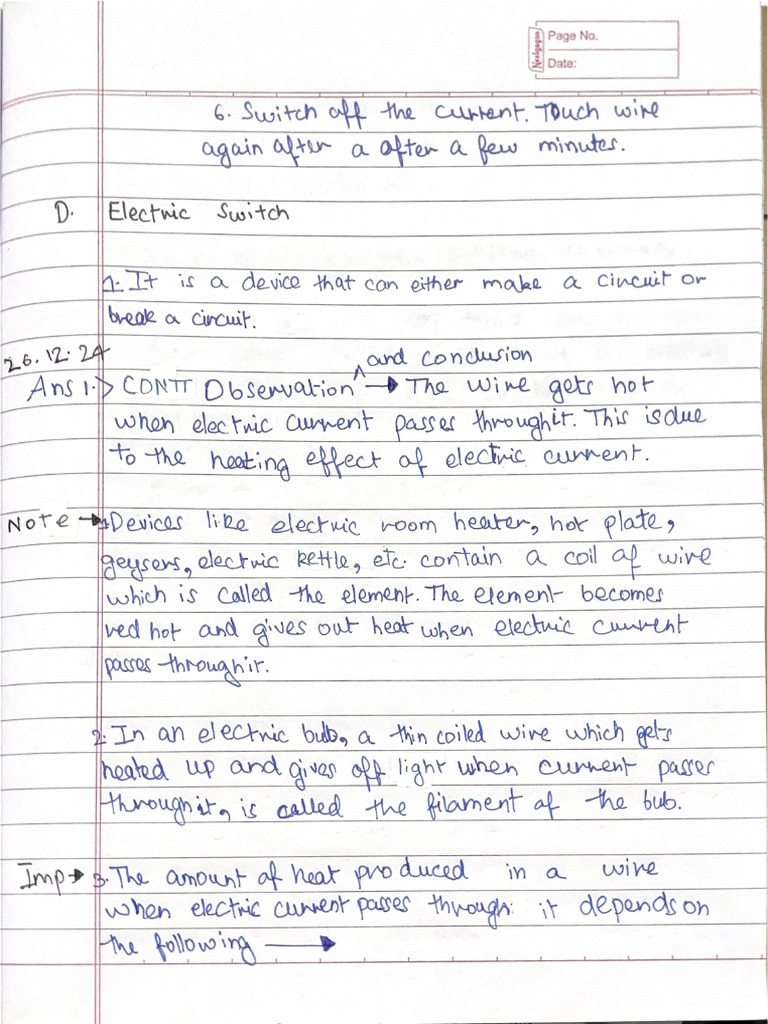 Neelgagan
Page No.
Date:
6. Switch off the current. Touch wire
again after a after a few minutes.
D. Electric Switch
1. It is a device that can either make a circuit or
break a circuit.
26.12.24
and conclusion
Ans 1.> CONTT Observation ^ → The wire gets hot
when electric current passes through it. This is due
to the heating effect of electric current.
Note → 1. Devices like electric room heater, hot plate,
geysers, electric kettle, etc. contain a coil of wire
which is called the element. The element becomes
red hot and gives out heat when electric current
passes through it.
2. In an electric bub, a thin coiled wire which gets
heated up and gives off light when current passes
through it, is called the filament of the bub.
Imp → 3. The amount of heat produced in a wire
when electric current passes through it depends on
the following →